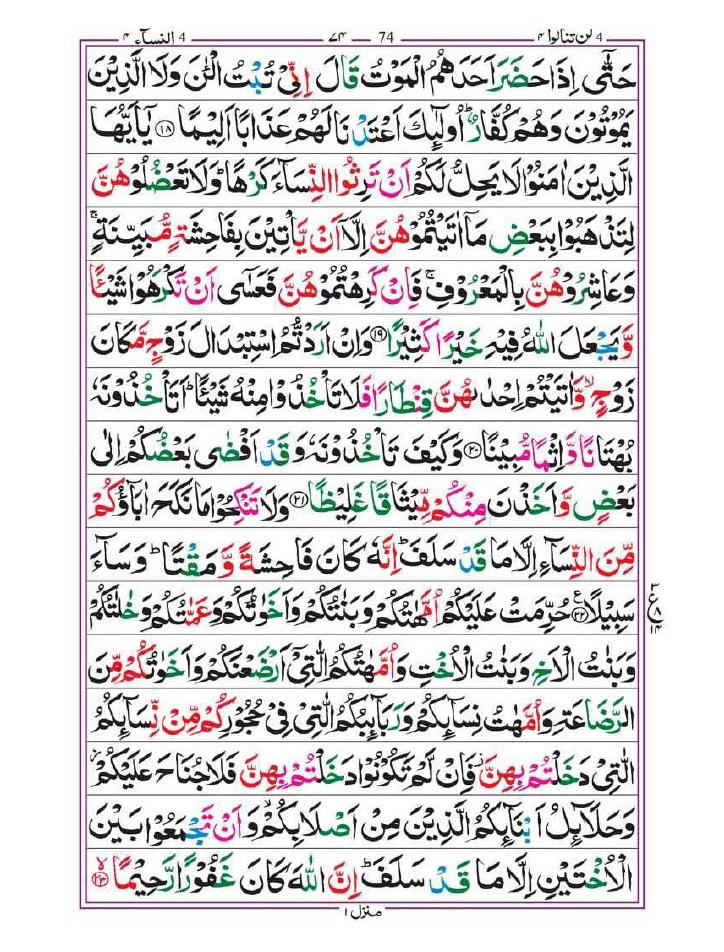 لن تنالوا ۴ 4 74 — ۷۴ النسآء ۴ 4
حَتّٰۤى اِذَا حَضَرَ اَحَدَهُمُ الْمَوْتُ قَالَ اِنِّیْ تُبْتُ الْـٰٔنَ وَلَا الَّذِیْنَ
یَمُوْتُوْنَ وَهُمْ كُفَّارٌ ؕ اُولٰٓىِٕكَ اَعْتَدْنَا لَهُمْ عَذَابًا اَلِیْمًا ﴿۱۸﴾ یٰۤاَیُّهَا
الَّذِیْنَ اٰمَنُوْا لَا یَحِلُّ لَكُمْ اَنْ تَرِثُوا النِّسَآءَ كَرْهًا ؕ وَلَا تَعْضُلُوْهُنَّ
لِتَذْهَبُوْا بِبَعْضِ مَاۤ اٰتَیْتُمُوْهُنَّ اِلَّاۤ اَنْ یَّاْتِیْنَ بِفَاحِشَةٍ مُّبَیِّنَةٍ ۚ
وَعَاشِرُوْهُنَّ بِالْمَعْرُوْفِ ۚ فَاِنْ كَرِهْتُمُوْهُنَّ فَعَسٰۤى اَنْ تَكْرَهُوْا شَیْـًٔا
وَّیَجْعَلَ اللّٰهُ فِیْهِ خَیْرًا كَثِیْرًا ﴿۱۹﴾ وَاِنْ اَرَدْتُّمُ اسْتِبْدَالَ زَوْجٍ مَّكَانَ
زَوْجٍ ۙ وَّاٰتَیْتُمْ اِحْدٰىهُنَّ قِنْطَارًا فَلَا تَاْخُذُوْا مِنْهُ شَیْـًٔا ؕ اَتَاْخُذُوْنَهٗ
بُهْتَانًا وَّاِثْمًا مُّبِیْنًا ﴿۲۰﴾ وَكَیْفَ تَاْخُذُوْنَهٗ وَقَدْ اَفْضٰى بَعْضُكُمْ اِلٰى
بَعْضٍ وَّاَخَذْنَ مِنْكُمْ مِّیْثَاقًا غَلِیْظًا ﴿۲۱﴾ وَلَا تَنْكِحُوْا مَا نَكَحَ اٰبَآؤُكُمْ
مِّنَ النِّسَآءِ اِلَّا مَا قَدْ سَلَفَ ؕ اِنَّهٗ كَانَ فَاحِشَةً وَّمَقْتًا ؕ وَسَآءَ
سَبِیْلًا ﴿۲۲﴾ ع حُرِّمَتْ عَلَیْكُمْ اُمَّهٰتُكُمْ وَبَنٰتُكُمْ وَاَخَوٰتُكُمْ وَعَمّٰتُكُمْ وَخٰلٰتُكُمْ
۳ ع ۸ ۱۴
وَبَنٰتُ الْاَخِ وَبَنٰتُ الْاُخْتِ وَاُمَّهٰتُكُمُ الّٰتِیْۤ اَرْضَعْنَكُمْ وَاَخَوٰتُكُمْ مِّنَ
الرَّضَاعَةِ وَاُمَّهٰتُ نِسَآىِٕكُمْ وَرَبَآىِٕبُكُمُ الّٰتِیْ فِیْ حُجُوْرِكُمْ مِّنْ نِّسَآىِٕكُمُ
الّٰتِیْ دَخَلْتُمْ بِهِنَّ ؗ فَاِنْ لَّمْ تَكُوْنُوْا دَخَلْتُمْ بِهِنَّ فَلَا جُنَاحَ عَلَیْكُمْ ؗ
وَحَلَآىِٕلُ اَبْنَآىِٕكُمُ الَّذِیْنَ مِنْ اَصْلَابِكُمْ ۙ وَاَنْ تَجْمَعُوْا بَیْنَ
الْاُخْتَیْنِ اِلَّا مَا قَدْ سَلَفَ ؕ اِنَّ اللّٰهَ كَانَ غَفُوْرًا رَّحِیْمًا ﴿۲۳﴾ ۙ
منزل ۱